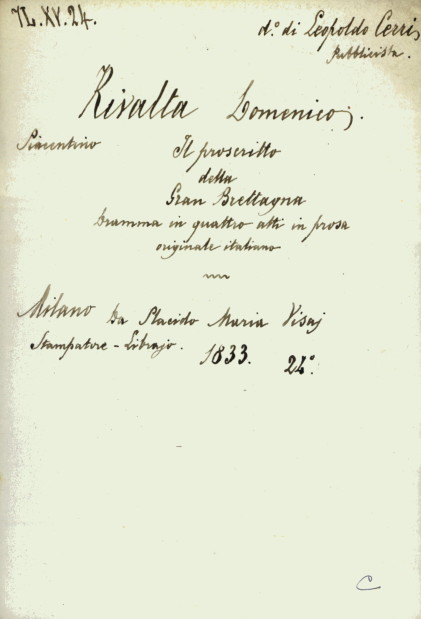 7L.XV.24.
d.º di Leopoldo Cerri,
Pubblicista.
Rivalta Domenico,.
Piacentino
Il proscritto
della
Gran Brettagna
Dramma in quattro atti in prosa
originale italiano
Milano Da Placido Maria Visaj
Stampatore - Librajo. 1833. 24º.
C